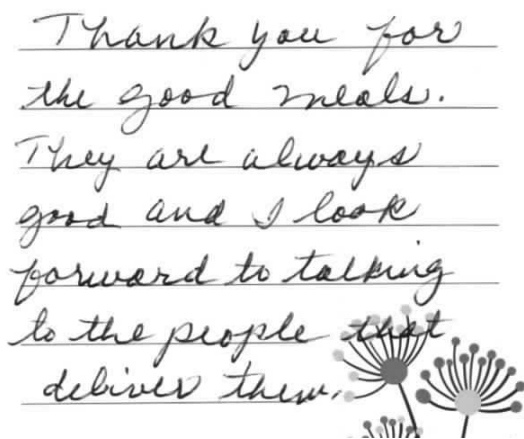 Thank you for
the good meals.
They are always
good and I look
forward to talking
to the people that
deliver them.